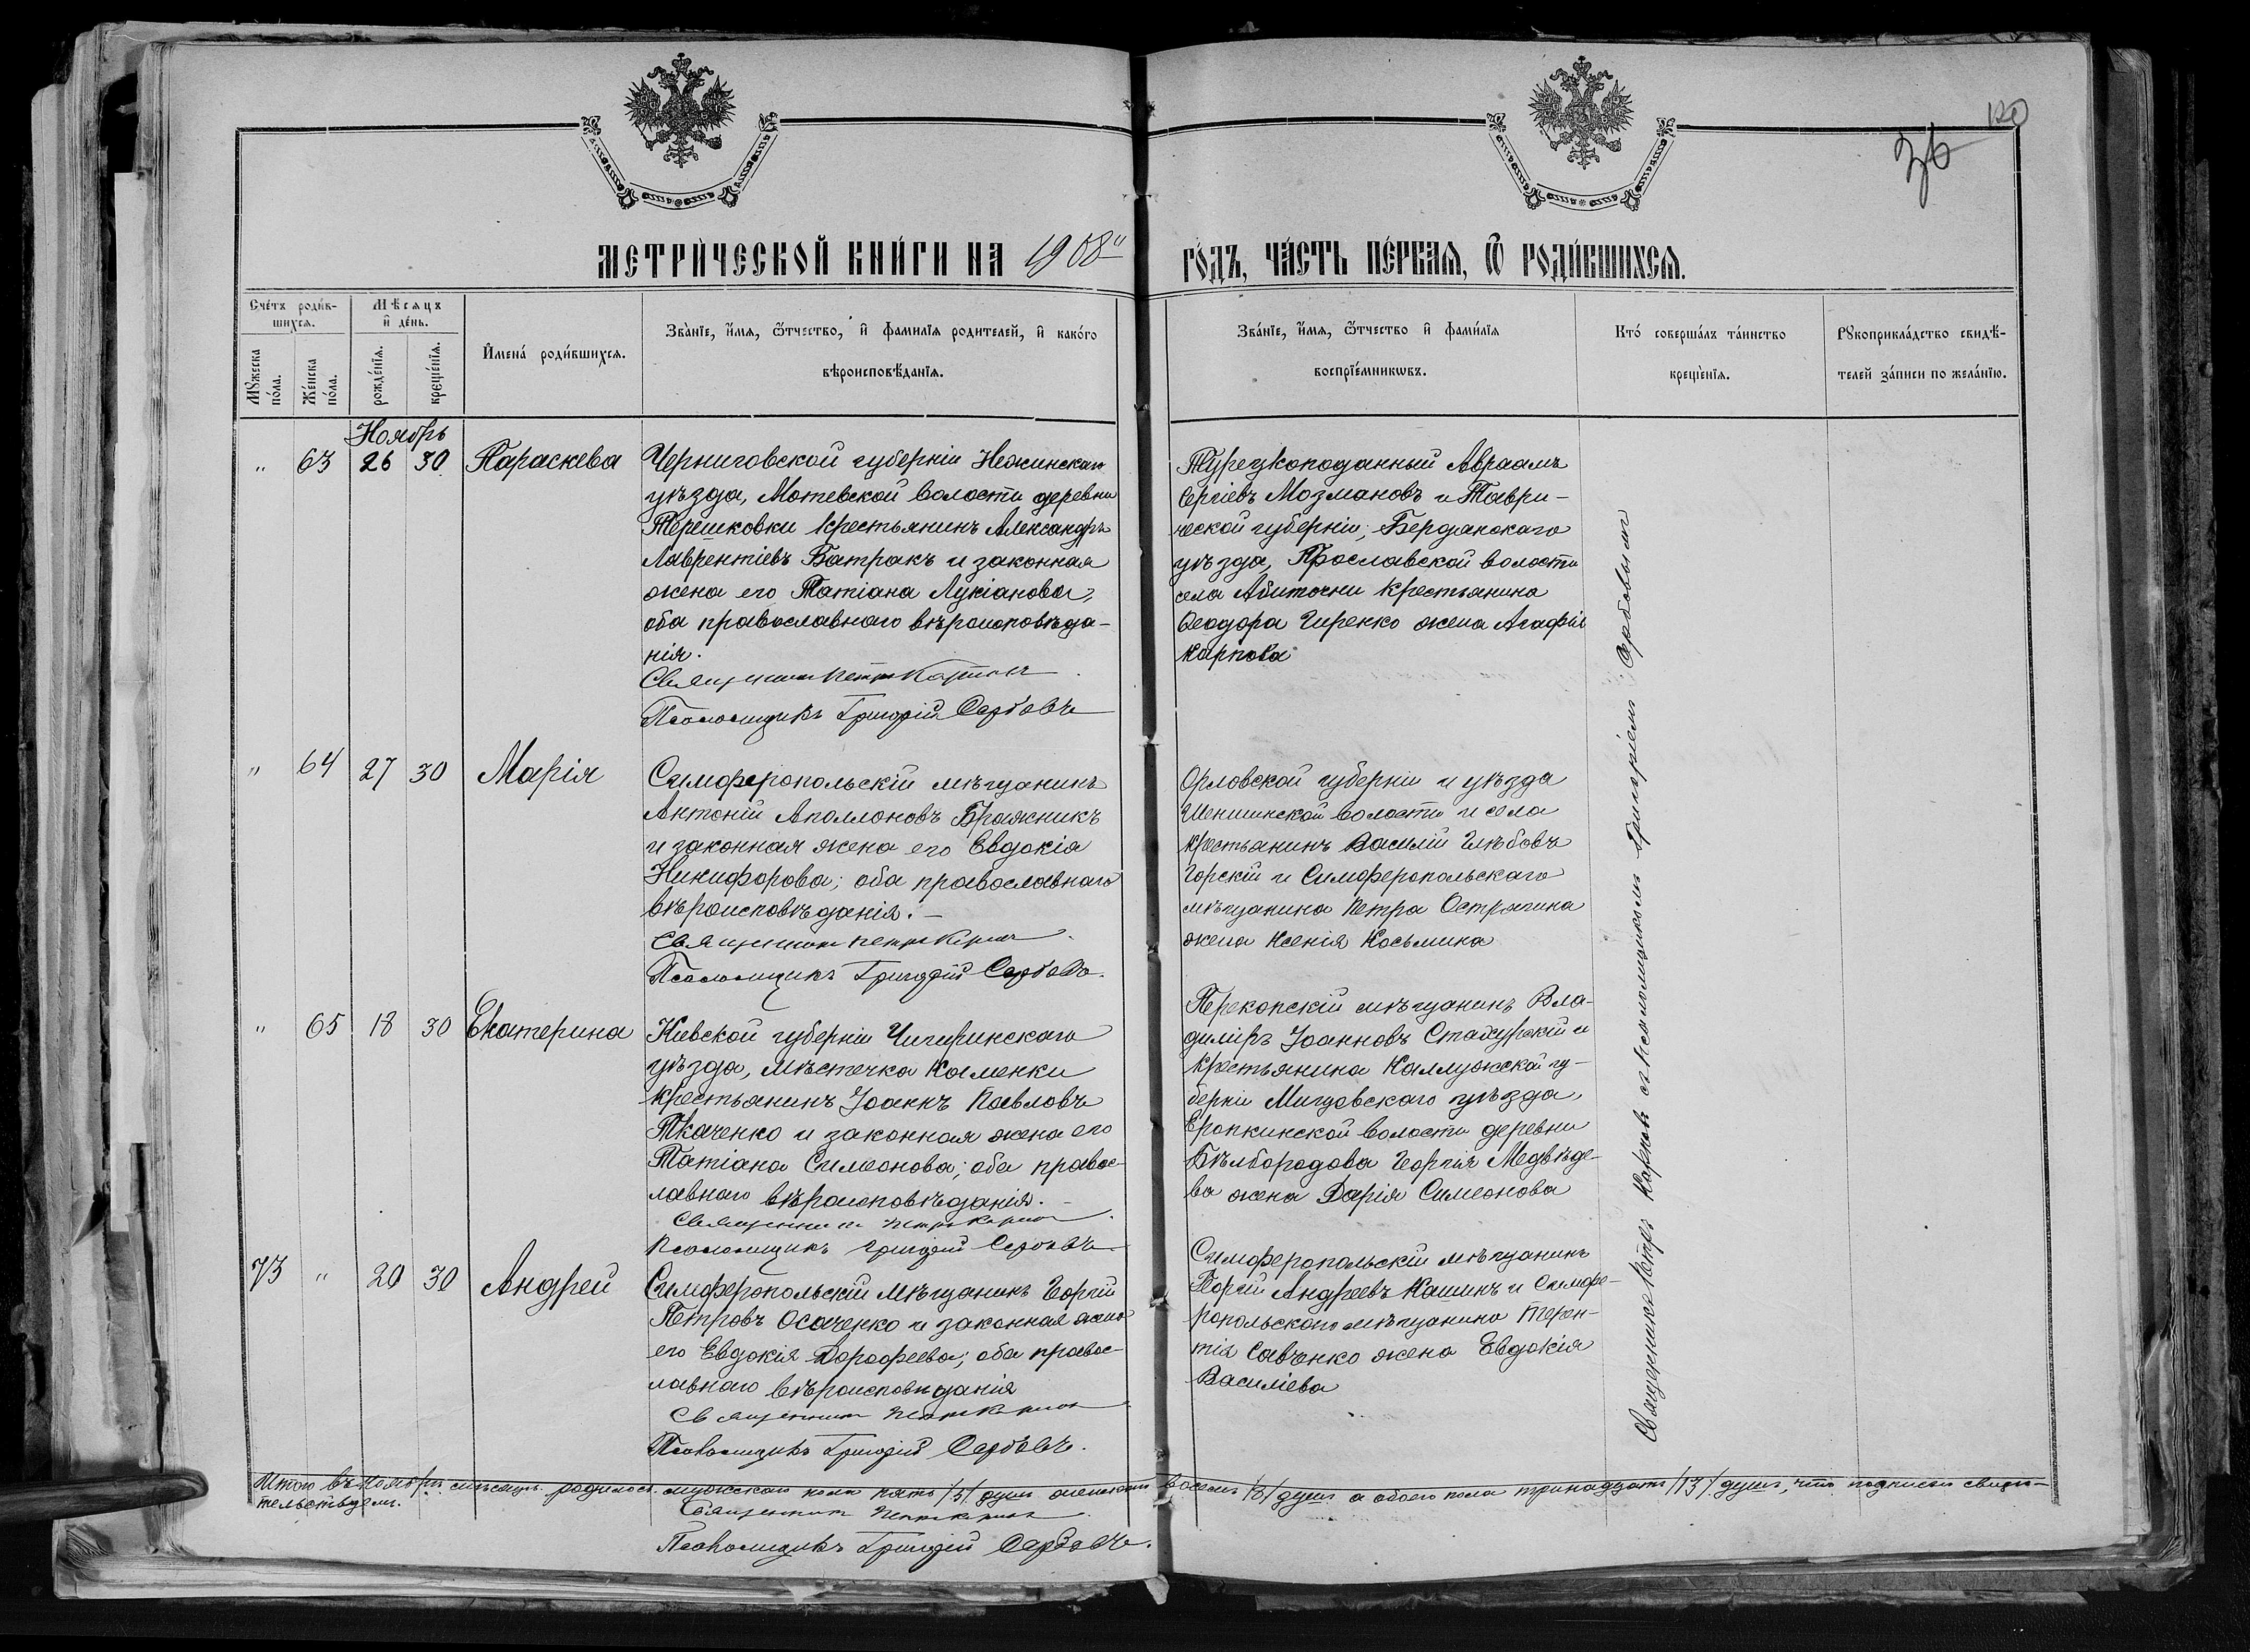 120
36
МЕТРИ́ЧЕСКОЙ КНИ́ГИ НА 1908 ГО́ДЪ, ЧА́СТЬ ПЕ́РВАЯ, Ѽ РОДИ́ВШИХСЯ.
Сче́тъ роди́в-
шихся.
Мѣ́сяцъ
и̑ де́нь.
Мꙋ́жеска по́ла.
Же́нска по́ла.
рожде́нїя.
креще́нїя.
И̑мена́ роди́вшихся.
Зва́нїе, и́мя, ѻ҆́тчество, и̑ фами́лїя родителей, и̑ како́го
вѣроисповѣ́данїя.
Зва́нїе, и́мя, ѻ҆́тчество и̑ фами́лїя
воспрїе́мникѡвъ.
Кто́ соверша́лъ та́инство
креще́нїя.
Рꙋкоприкла́дство свидѣ́-
телей за́писи по жела́нїю.
Ноябрь
" 63 26 30 Параскева
Черниговской губерніи Нежинскаго
уѣзда, Мотевской волости деревни
Терешковки крестьянинъ Александръ
Лаврентіевъ Батракъ и законная
жена его Татіана Лукіанова,
оба православнаго вѣроисповѣда-
нія.
Священникъ Петръ Карповъ
Псаломщикъ Григорій Сербовъ
Турецкоподанный Авраамъ
Сергіевъ Мозмановъ и Таври-
ческой губерніи, Бердянскаго
уѣзда, Прославской волости
села Абиточни крестьянина
Ѳеодора Гиренко жена Агафія
Карпова
" 64 27 30 Марія
Симферопольскій мѣщанинъ
Антоній Аполлоновъ Бражникъ
и законная жена его Евдокія
Никифорова; оба православнаго
вѣроисповѣданія. –
Священникъ Петръ Карповъ
Псаломщикъ Григорій Сербовъ.
Орловской губерніи и уѣзда
Шеншинской волости и села
крестьянинъ Василій Глѣбовъ
Горскій и Симферопольскаго
мѣщанина Петра Острягина
жена Ксенія Косьмина
" 65 18 30 Екатерина
Кіевской губерніи Чигиринскаго
уѣзда, мѣстечка Каменки
крестьянинъ Іоаннъ Павловъ
Ткаченко и законная жена его
Татіана Симеонова; оба правос-
лавнаго вѣроисповѣданія. –
Священникъ Петръ Карповъ
Псаломщикъ Григорій Сербовъ
Перекопскій мѣщанинъ Вла-
диміръ Іоанновъ Стахурскій и
крестьянина Каллужской гу-
берніи Мигдовскаго уѣзда,
Еропкинской волости деревни
Бѣлбородова Георгія Медвѣде-
ва жена Дарія Симеонова
73 " 20 30 Андрей
Симферопольскій мѣщанинъ Георгій
Петровъ Осаченко и законная жена
его Евдокія Дорофеева; оба правос-
лавнаго вѣроисповѣданія
Священникъ Петръ Карповъ
Псаломщикъ Григорій Сербовъ.
Симферопольскій мѣщанинъ
Георгій Андреевъ Кашинъ и Симфе-
ропольскаго мѣщанина Терен-
тія Савченко жена Евдокія
Василіева
Священникъ Петръ Карповъ съ Псаломщикомъ Григоріемъ Сербовымъ
Итого въ Ноябрѣ мѣсяцѣ родилось мужскаго пола пять /5/ душ женскаго восемь /8/ душ а обоего пола тринадцать /13/ душъ, что подписом свидѣ-
тельствуемъ.
Священникъ Петръ Карповъ
Псаломщикъ Григорій Сербовъ.